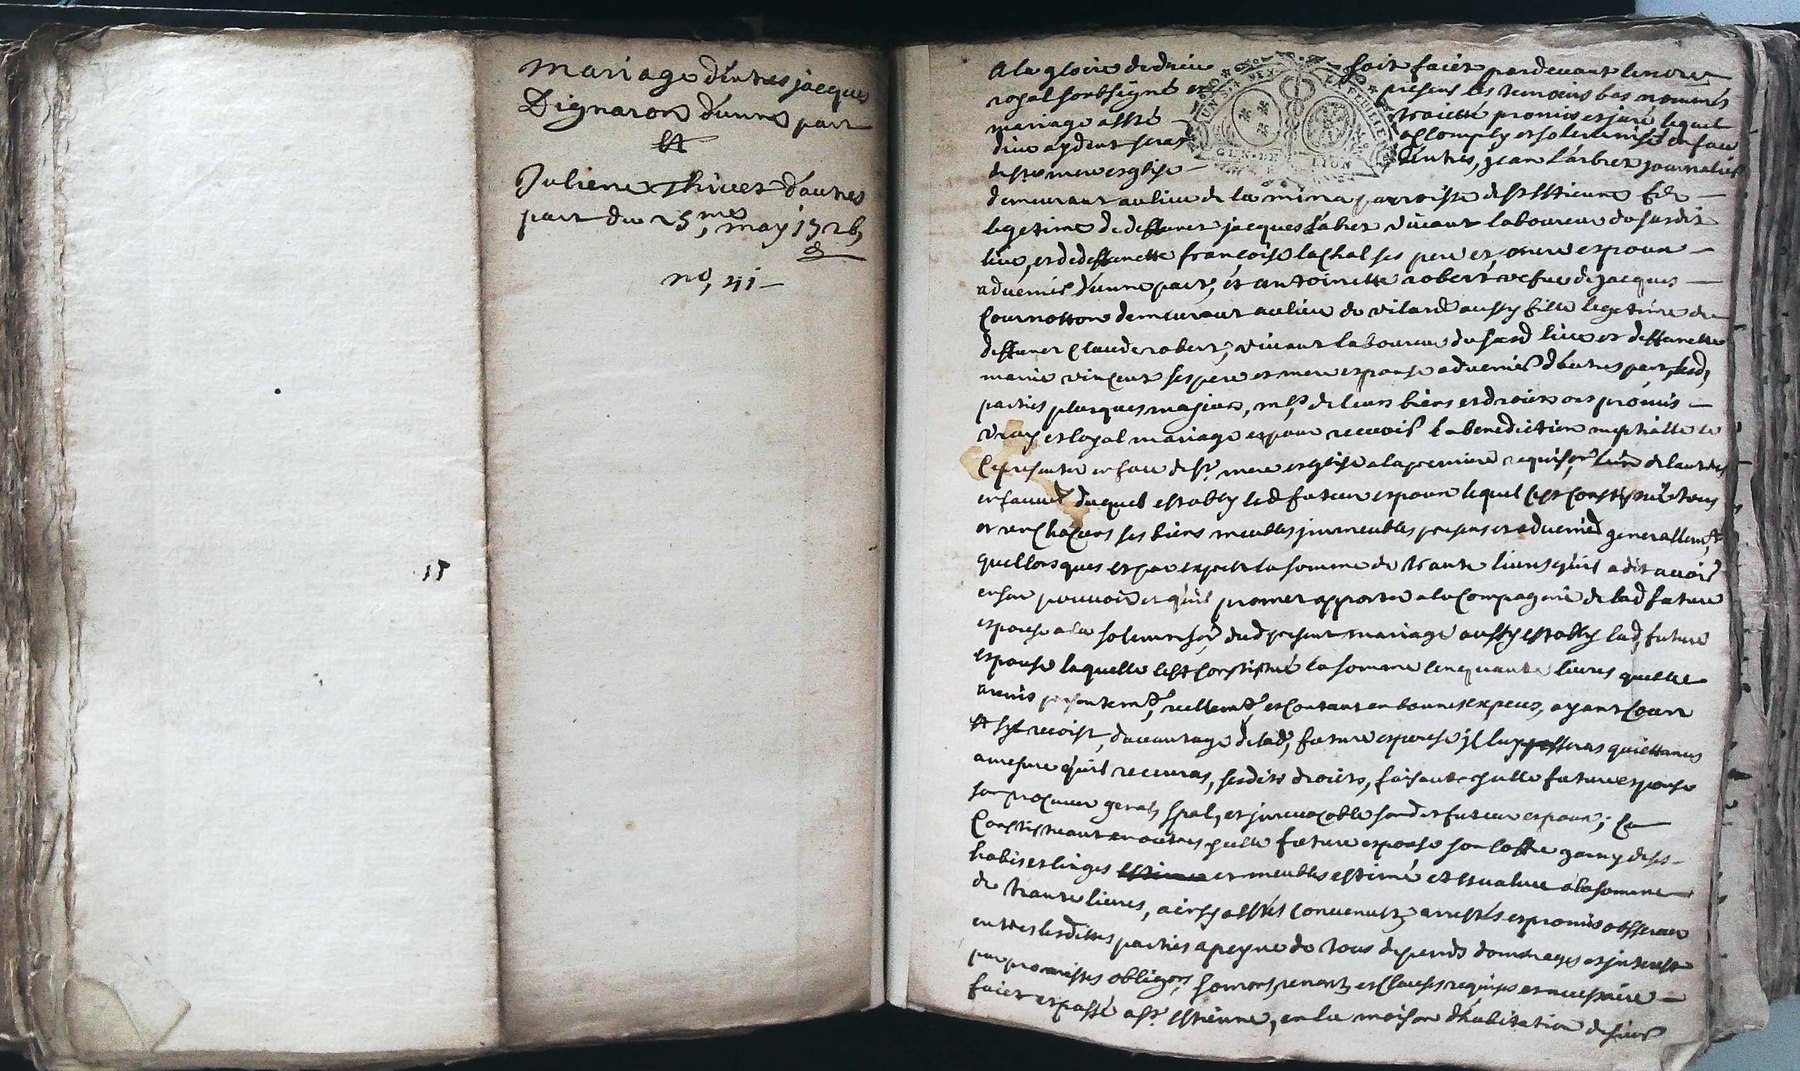 mariage d'entres jacques
Dignaron d'unne part
Et
Juliene Thivet d'autres
part du 25,mes may 1726,
no, 41
A la gloire de dieu soit faict pardevant le no.re
royal soubsigné et presens les temoins bas nommés
mariage a esté traietté promis et juré lequel
dieu aydent seras accomply et solemnisé en face
de s.te mere esglise Entres, jean L'arbret journalier
demeurant au lieu de la mina parroisse de st Ettienne fils
legetime de deffunct jacques L'abret vivant laboureur du susdit
lieu, et de deffunette françoise laChal ses pere et, mere espoux
advenir d'unne part, et antoinette robert vefve de jacques
demeurant au lieu de vilard aussy fille legetime de
deffunct Claude robert, vivant laboureur du susd lieu et deffunette
marie vinCent ses pere et mere espouse advenir d'autres part, lesd,
parties plusques majeurs, m.es de leurs biens et droicts ont promis
vray et loyal mariage et pour recevoir la benediction nuptialle se
Represanter en face de s.te mere esglise a la premiere requis.on l'un de l'autres
en faveur duquel estably led futeur espoux lequel s'est Constistué tous
et un chaCuns ses biens meubles jmmeubles presens et advenir generallem.t
quellonsques et par exprest la somme de trante livres qu'il a dit avoir
en son pouvoir et qu'il promet apporter a la Compagnie de lad future
espouse a la solemnis.on dud present mariage aussy estably lad, future
espouse laquelle s'est Constistué la somme Cinquante livres quelle
a remis presentem.t, reellem.t, et Contant en bonnes expeces, ayant Cour
Et s'yl reçoist, davantage de lad, future espouse jl luy passeras quiettances
a mesure qu'il recevras, sesdits droicts, faisant jcelle future espouse
son proCureur geral, spal, et jrrevoCable sondit futeur espoux; se
Constistuant en outres jcelle future espouse son Coffre garny de ses
habis et linges et meubles estimé et evaluée a la somme
de trante livres, ainsy a estés Convenu, arrestés et promis observer
entres lesdittes parties a peyne de tous depends domages et jnterest
par promesses oblig.ons, renon.t, et Clauses requises et necessaire
faict et passé a st. estienne, en la maison d'habitation de sieur